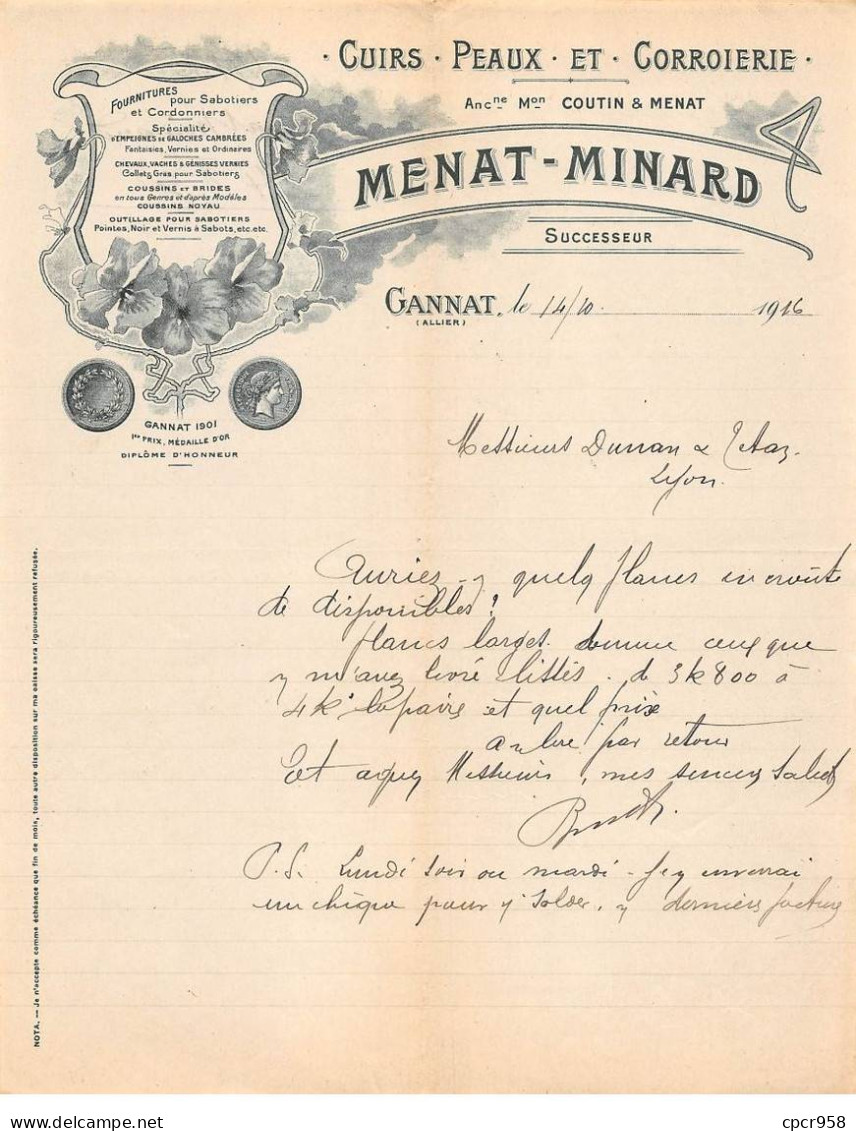 CUIRS · PEAUX · ET · CORROIERIE ·
Anc^ne M^on COUTIN & MENAT
MENAT-MINARD
SUCCESSEUR
FOURNITURES
pour Sabotiers
et Cordonniers
Spécialité
D'EMPEIGNES DE GALOCHES CAMBRÉES
Fantaisies, Vernies et Ordinaires
CHEVAUX, VACHES & GÉNISSES VERNIES
Collets Gras pour Sabotiers
COUSSINS ET BRIDES
en tous Genres et d'après Modèles
COUSSINS NOYAU
OUTILLAGE POUR SABOTIERS
Pointes, Noir et Vernis à Sabots, etc. etc.
GANNAT 1901
1er PRIX, MÉDAILLE D'OR
DIPLÔME D'HONNEUR
GANNAT, le 14/10 1916
(ALLIER)
Messieurs
Lyon.
Auriez-y quelq flancs en croûte
de disponibles?
flancs larges comme ceux que
y m'avez livré . de 3k800 à
4k la paire et quel prix
par retour
Et Messieurs, mes
P.S. Lundi soir ou mardi - enverrai
un chèque pour y solder, y dernière facture
NOTA. — Je n'accepte comme échéance que fin de mois, toute autre disposition sur ma caisse sera rigoureusement refusée.
delcampe.net
cpcr958